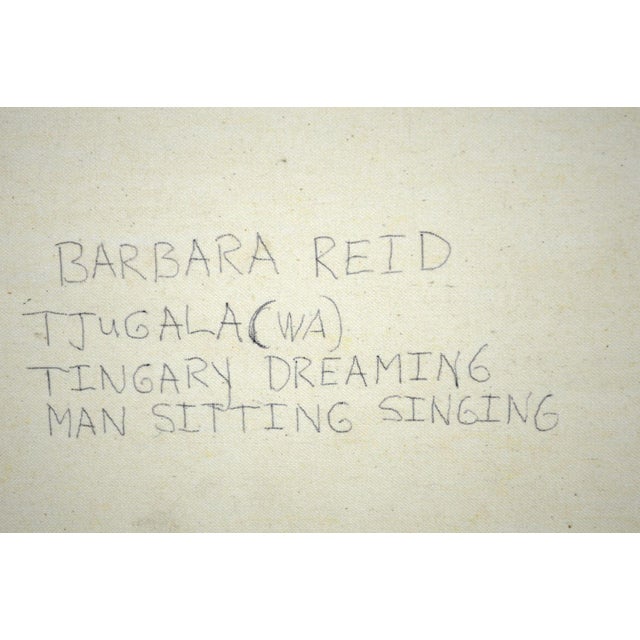 BARBARA REID
TJUGALA(WA)
TINGARY DREAMING
MAN SITTING SINGING